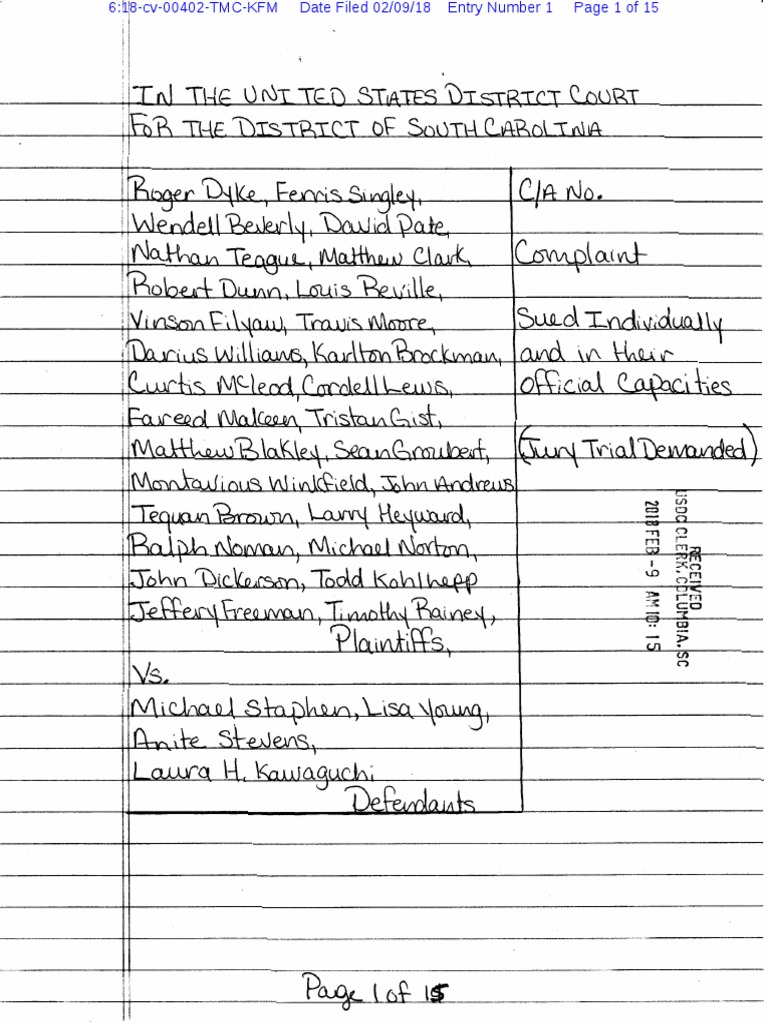 6:18-cv-00402-TMC-KFM Date Filed 02/09/18 Entry Number 1 Page 1 of 15
IN THE UNITED STATES DISTRICT COURT
FOR THE DISTRICT OF SOUTH CAROLINA
Roger Dyke, Ferris Singley,
Wendell Beverly, David Pate,
Nathan Teague, Matthew Clark,
Robert Dunn, Louis Reville,
Vinson Filyaw, Travis Moore,
Darius Williams, Karlton Brockman,
Curtis McLeod, Cordell Lews,
Fareed Makeen, Tristan Gist,
Matthew Blakley, Sean Groubert,
Montavious Winkfield, John Andrews
Tequan Brown, Larry Heyward,
Ralph Noman, Michael Norton,
John Dickerson, Todd Kohlhepp
Jeffery Freeman, Timothy Rainey,
Plaintiffs,
Vs.
Michael Staphen, Lisa Young,
Anite Stevens,
Laura H. Kawaguchi
Defendants
C/A No.
Complaint
Sued Individually
and in their
official Capacities
(Jury Trial Demanded)
RECEIVED
USDC CLERK, COLUMBIA, SC
2018 FEB -9 AM 10: 15
Page 1 of 15